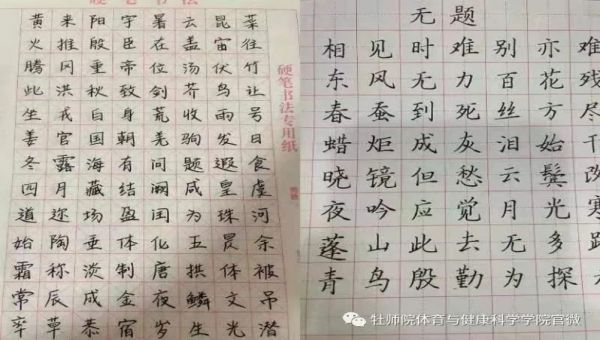 硬笔书法
黄来阳宇暑云昆菜
火推殷臣在盖宙往
腾冈重帝位汤伏竹
此洪秋致剑芥鸟让
坐戎白身荒收雨号
姜官国朝羌驹发日
冬露海有问题遐食
四月藏结阙咸皇虞
道迩场盈闰为珠河
始陶垂体化玉晨余
霜称淡制唐拱体被
常辰成金夜鳞文吊
率草恭宿岁生光潜
硬笔书法专用纸
无题
相见时难别亦难
东风无力百花残
春蚕到死丝方尽
蜡炬成灰泪始干
晓镜但愁云鬓改
夜吟应觉月光寒
蓬山此去无多路
青鸟殷勤为探
牡师院体育与健康科学学院官微